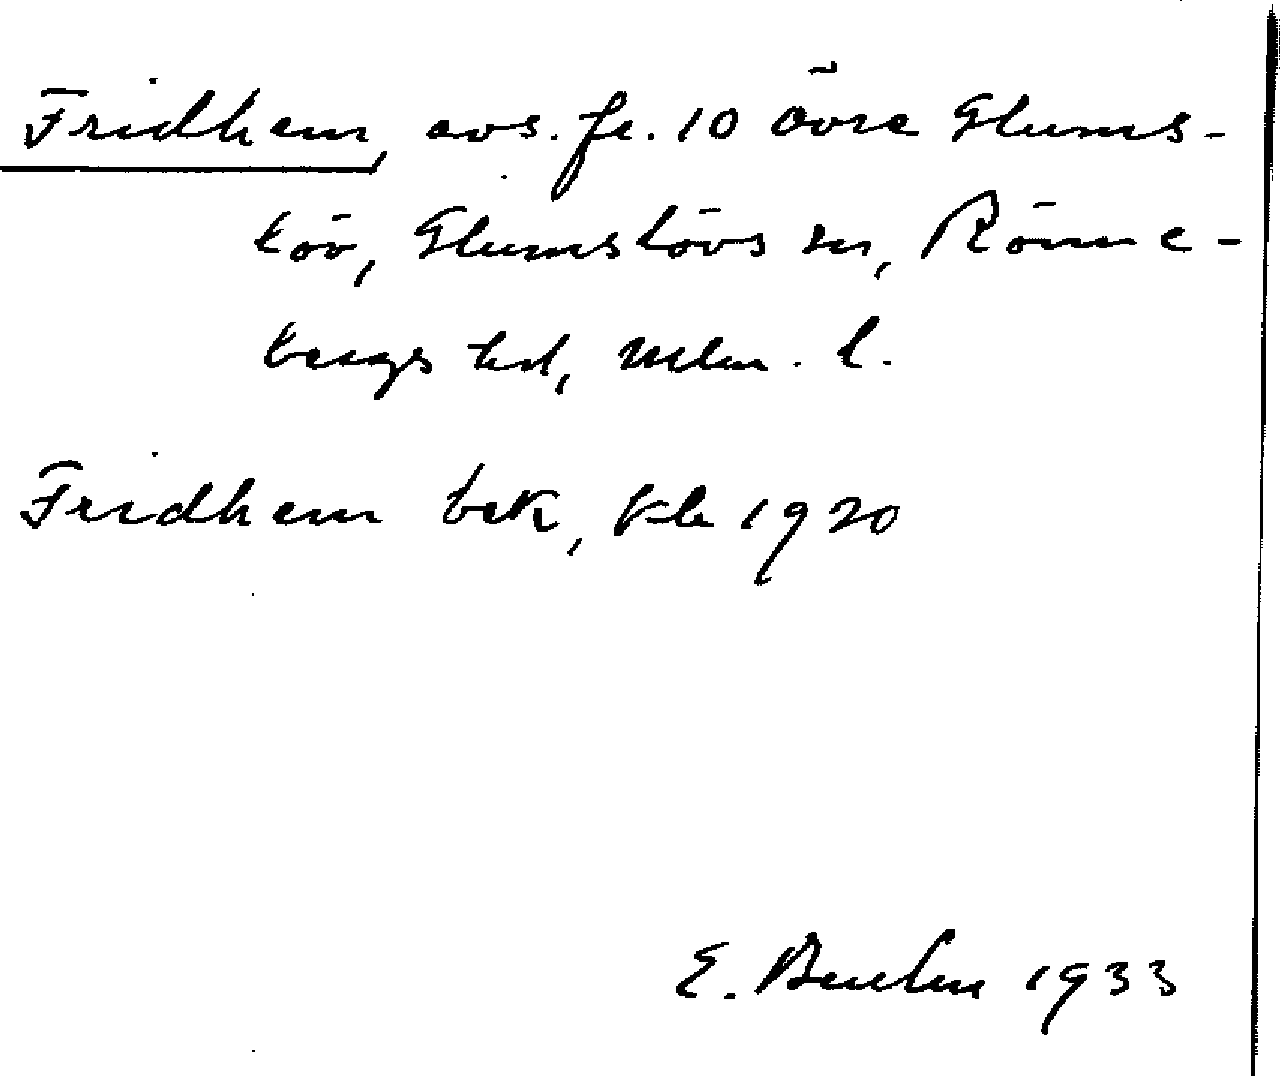 Fridhem, avs. fr. 10 Övre Glums-
löv, Glumslövs sn, Rönne-
bergs hd, Mlm. l.
Fridhem bek, fkb 1920
E. 1933